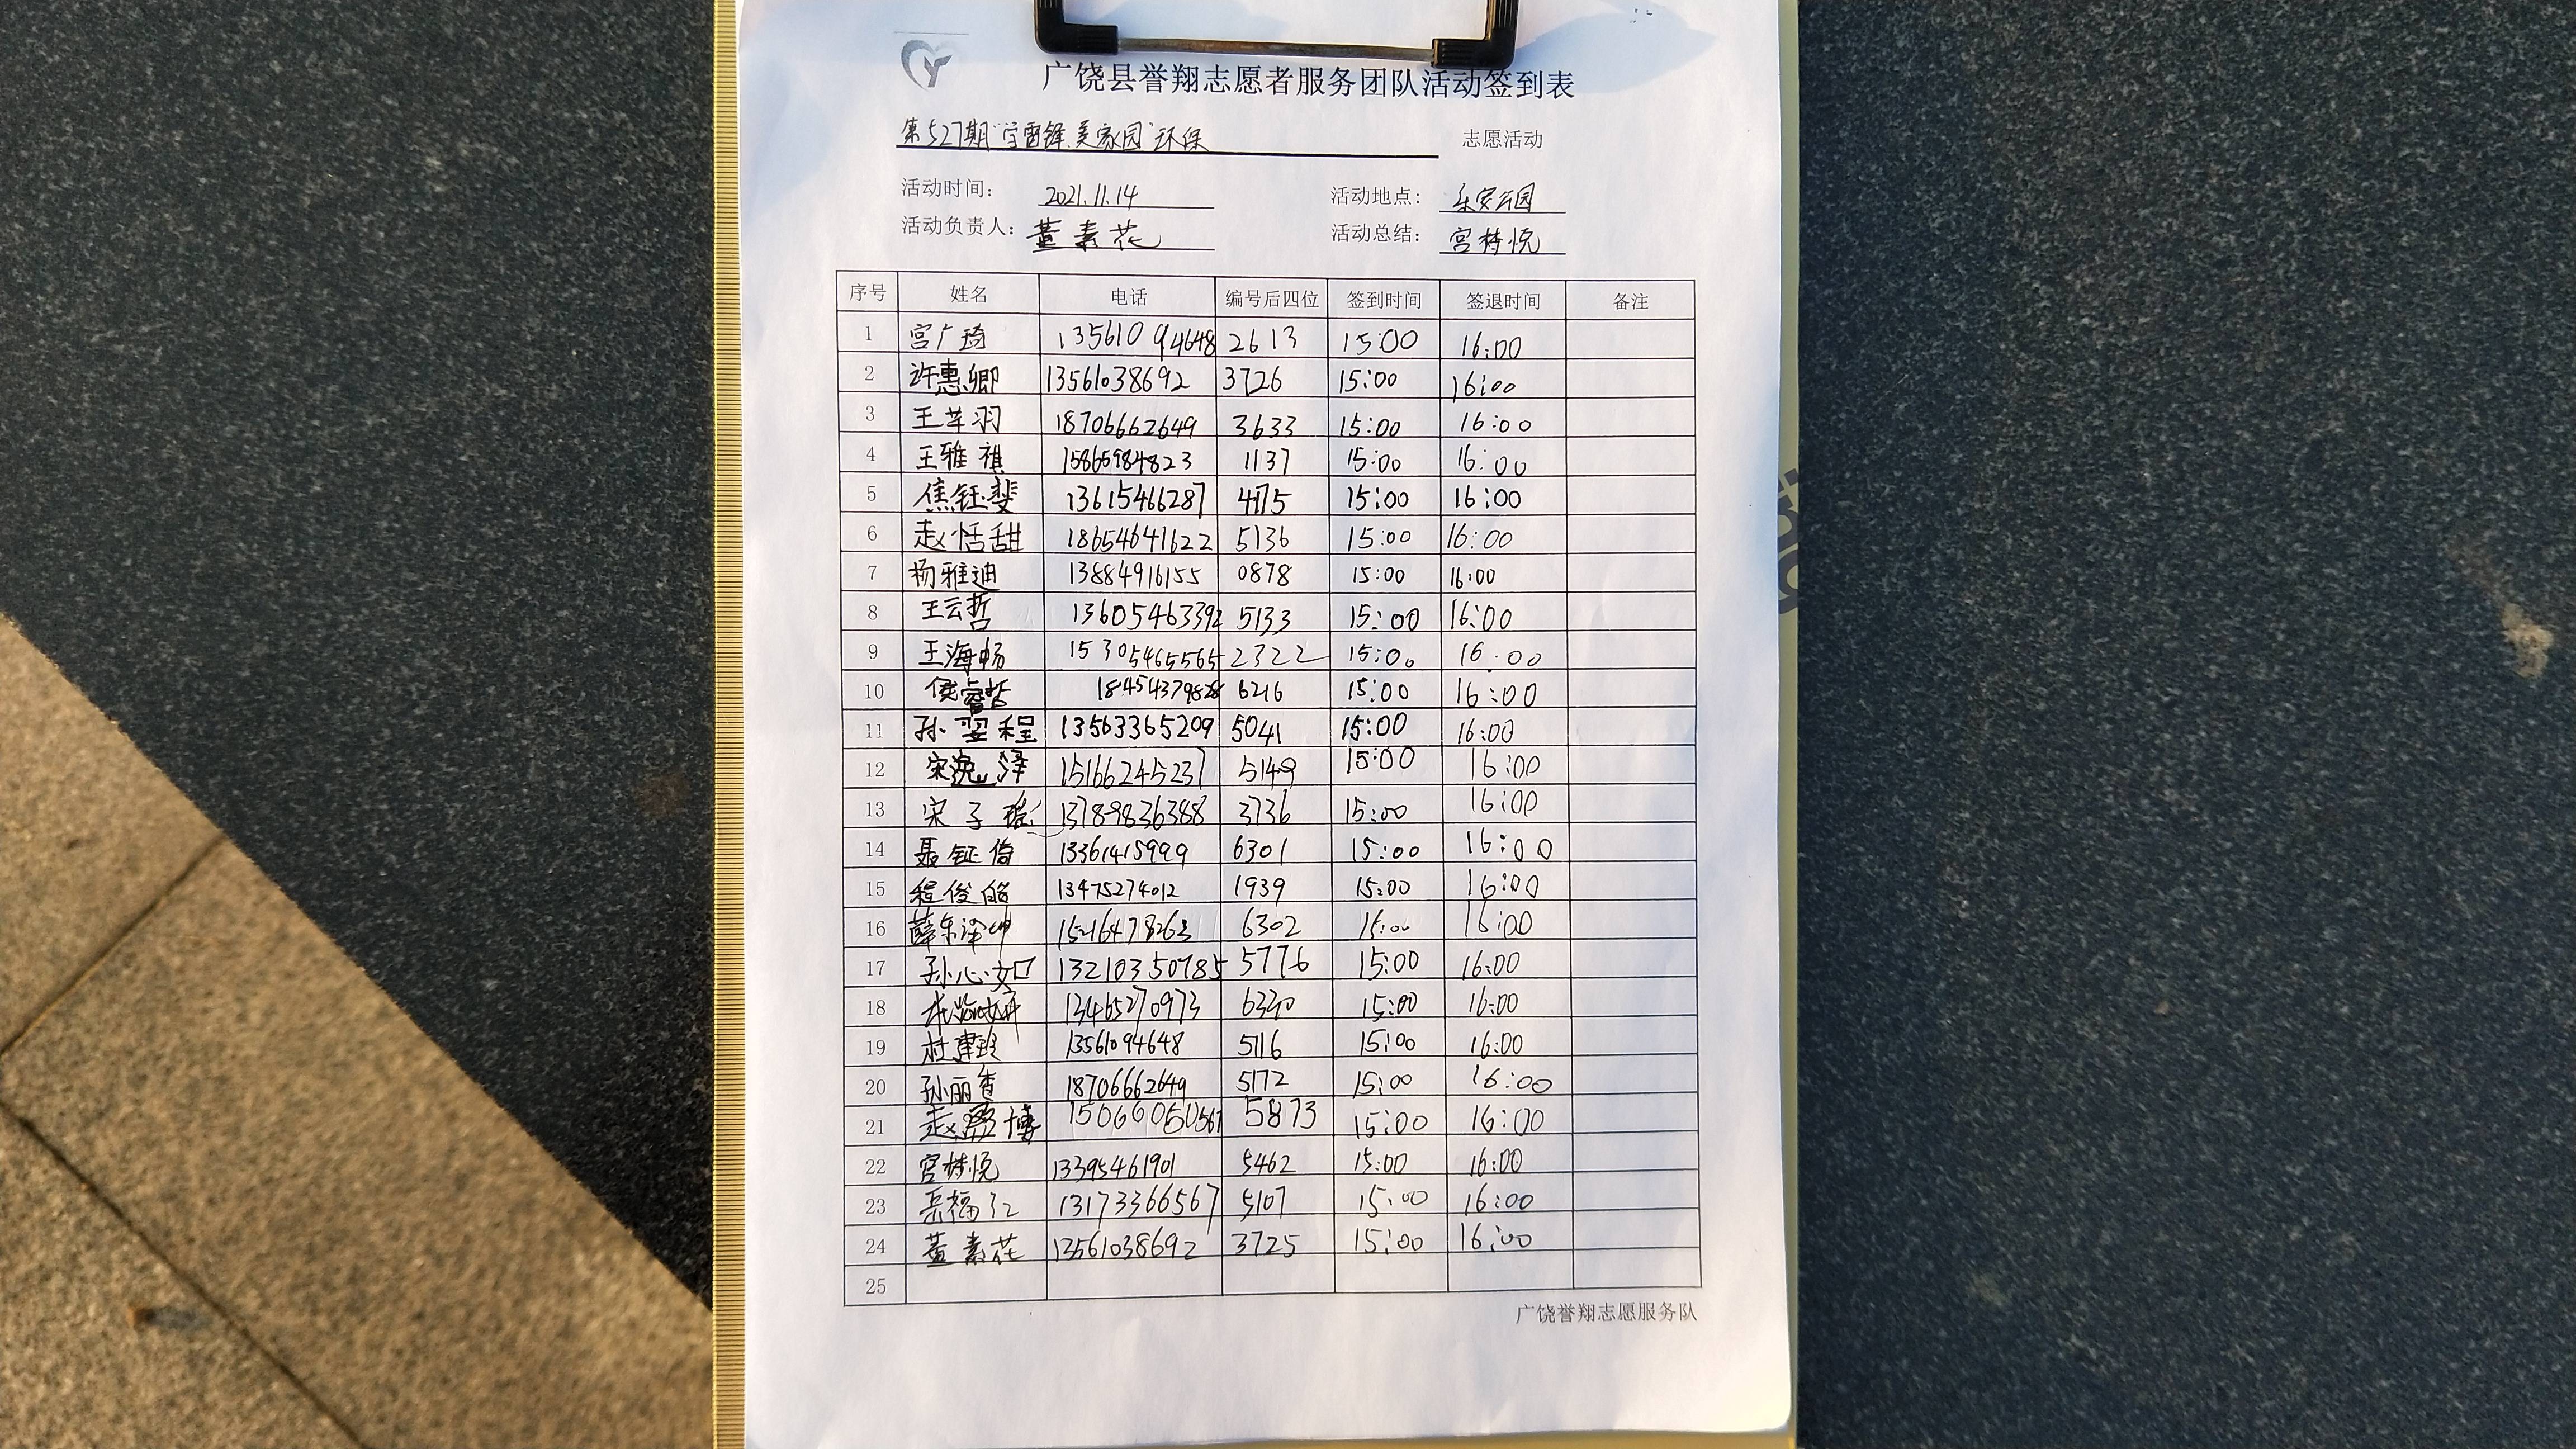 广饶县誉翔志愿者服务团队活动签到表
第527期"学雷锋.美家园"环保 志愿活动
活动时间: 2021.11.14 活动地点: 乐安公园
活动负责人: 董素花 活动总结: 宫梓悦
序号 姓名 电话 编号后四位 签到时间 签退时间 备注
1 宫广琦 13561094648 2613 15:00 16:00
2 许惠卿 13561038692 3726 15:00 16:00
3 王芊羽 18706662649 3633 15:00 16:00
4 王雅祺 15865984823 1137 15:00 16:00
5 焦钰斐 13615466287 4175 15:00 16:00
6 赵恬甜 18654641622 5136 15:00 16:00
7 杨雅迪 13884916155 0878 15:00 16:00
8 王云哲 13605463392 5133 15:00 16:00
9 王海畅 15305465565 2322 15:00 16:00
10 侯睿哲 18454379828 6216 15:00 16:00
11 孙翌程 13563365209 5041 15:00 16:00
12 宋逸泽 15166245237 5149 15:00 16:00
13 宋子瑶 13789836388 3736 15:00 16:00
14 聂钲倚 13361415999 6301 15:00 16:00
15 程俊皓 13475274012 1939 15:00 16:00
16 薛东泽坤 15216478263 6302 15:00 16:00
17 孙心如 13210350785 5776 15:00 16:00
18 13465270973 15:00 16:00
19 杜建玲 13561094648 5116 15:00 16:00
20 孙丽香 18706662649 5172 15:00 16:00
21 赵 博 15066050567 5873 15:00 16:00
22 宫梓悦 13395461901 5462 15:00 16:00
23 岳福仁 13173366567 5107 15:00 16:00
24 董素花 13561038692 3725 15:00 16:00
25
广饶誉翔志愿服务队